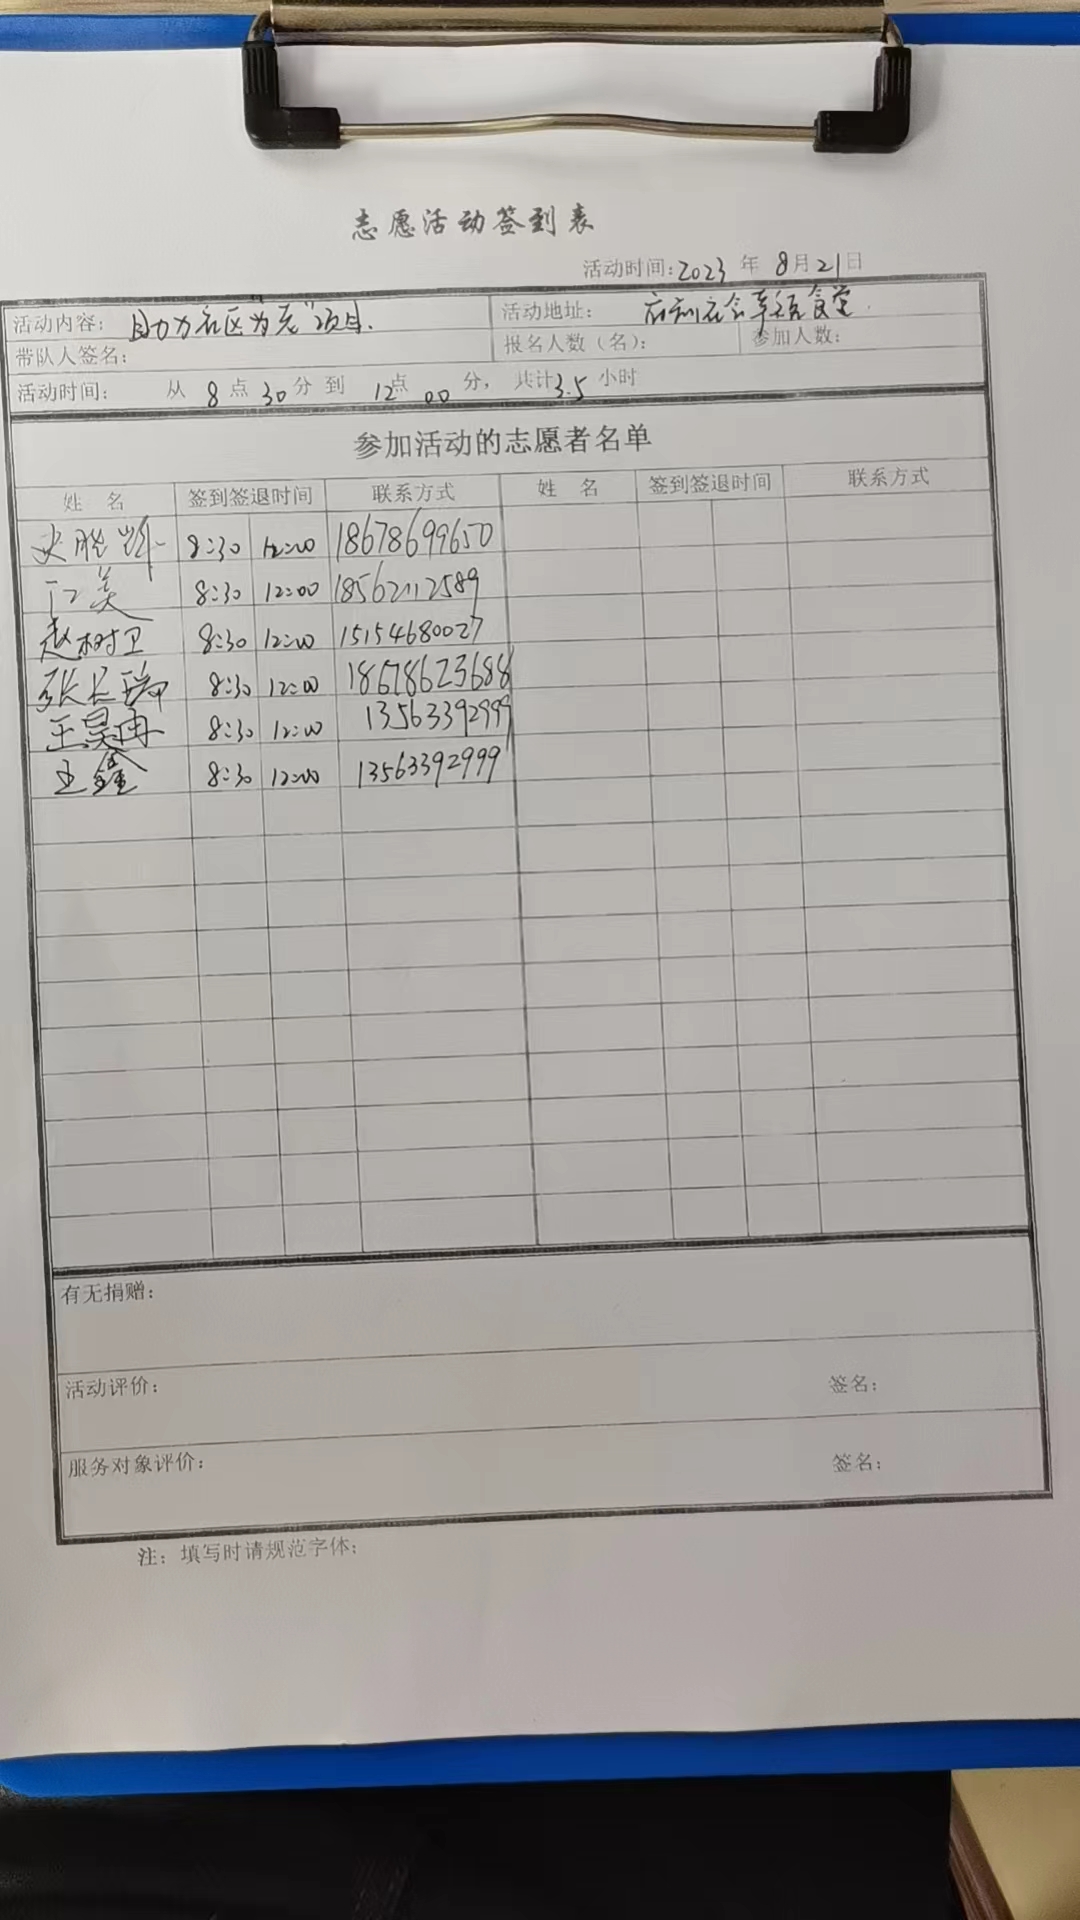 志愿活动签到表
活动时间:2023 年 8月21日
活动内容: 助力社区为老"项目. 活动地址: 食堂
带队人签名: 报名人数(名): 参加人数:
活动时间: 从 8 点 30 分 到 12点 00 分, 共计3.5 小时
参加活动的志愿者名单
姓 名 签到签退时间 联系方式 姓 名 签到签退时间 联系方式
8:30 12:00 18678699650
美 8:30 12:00 18562112589
赵树卫 8:30 12:00 15154680027
张 瑞 8:30 12:00 18678623688
王昊冉 8:30 12:00 13563392999
王鑫 8:30 12:00 13563392999
有无捐赠:
活动评价: 签名:
服务对象评价: 签名:
注: 填写时请规范字体;